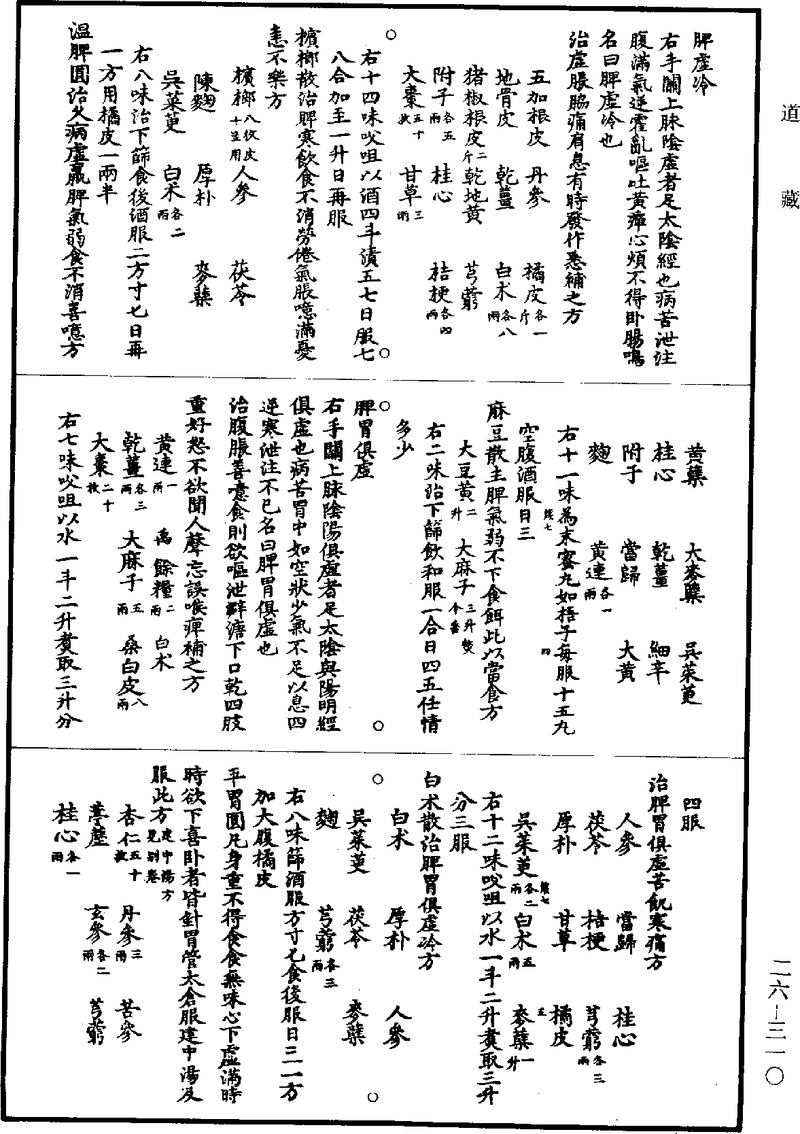 道藏
脾虛冷
右手關上脉陰虛者足太陰經也病苦泄注
腹滿氣逆霍亂嘔吐黃癉心煩不得卧腸鳴
名曰脾虛冷也
治虛脹脇痛肩息有時發作悉補之方
五加根皮 丹參 橘皮各一斤
地骨皮 乾薑 白术各八兩
猪椒根皮二斤 乾地黃 芎藭
附子各五兩 桂心 桔梗各四兩
大棗五十枚 甘草三兩
右十四味㕮咀以酒四斗漬五七日服七
八合加至一升日再服
檳榔散治脾寒飲食不消勞倦氣脹噫滿憂
恚不樂方
檳榔八枚皮十豆用 人參 茯苓
陳麴 厚朴 麥蘖
吳茱萸 白术各二兩
右八味治下篩食後酒服二方寸匕日再
一方用橘皮一兩半
溫脾圓治久病虛羸脾氣弱食不消喜噫方
黃蘗 大麥蘖 吳茱萸
桂心 乾薑 細辛
附子 當歸 大黃
麴 黃連各一兩
右十一味為末蜜丸如梧子每服十五丸
空腹酒服日三
錢七 四
麻豆散主脾氣弱不下食餌此以當食方
大豆黃二升 大麻子三升熬令香
右二味治下篩飲和服一合日四五任情
多少
脾胃俱虛
右手關上脉陰陽俱虛者足太陰與陽明經
俱虛也病苦胃中如空狀少氣不足以息四
逆寒泄注不已名曰脾胃俱虛也
治腹脹善噫食則欲嘔泄澼溏下口乾四肢
重好怒不欲聞人聲忘誤喉痹補之方
黃連一兩 禹餘糧二兩 白术
乾薑各三兩 大麻子五兩 桑白皮八兩
大棗二十枚
右七味㕮咀以水一斗二升煑取三升分
四服
治脾胃俱虛苦飢寒痛方
人參 當歸 桂心
茯苓 桔梗 芎藭各三兩
厚朴 甘草 橘皮
吳茱萸各二兩 白术五兩 麥蘖一升
右十二味㕮咀以水一斗二升煑取三升
錢七 五
分三服
白术散治脾胃俱虛冷方
白术 厚朴 人參
吳茱萸 茯苓 麥蘖
麴 芎藭各三兩
右八味篩酒服方寸匕食後服日三一方
加大腹橘皮
平胃圓凡身重不得食食無味心下虛滿時
時欲下喜卧者皆針胃管太倉服建中湯及
服此方建中湯方見別卷
杏仁五十枚 丹參三兩 苦參
葶藶 玄參各二兩 芎藭
桂心各一兩
二六—三一〇